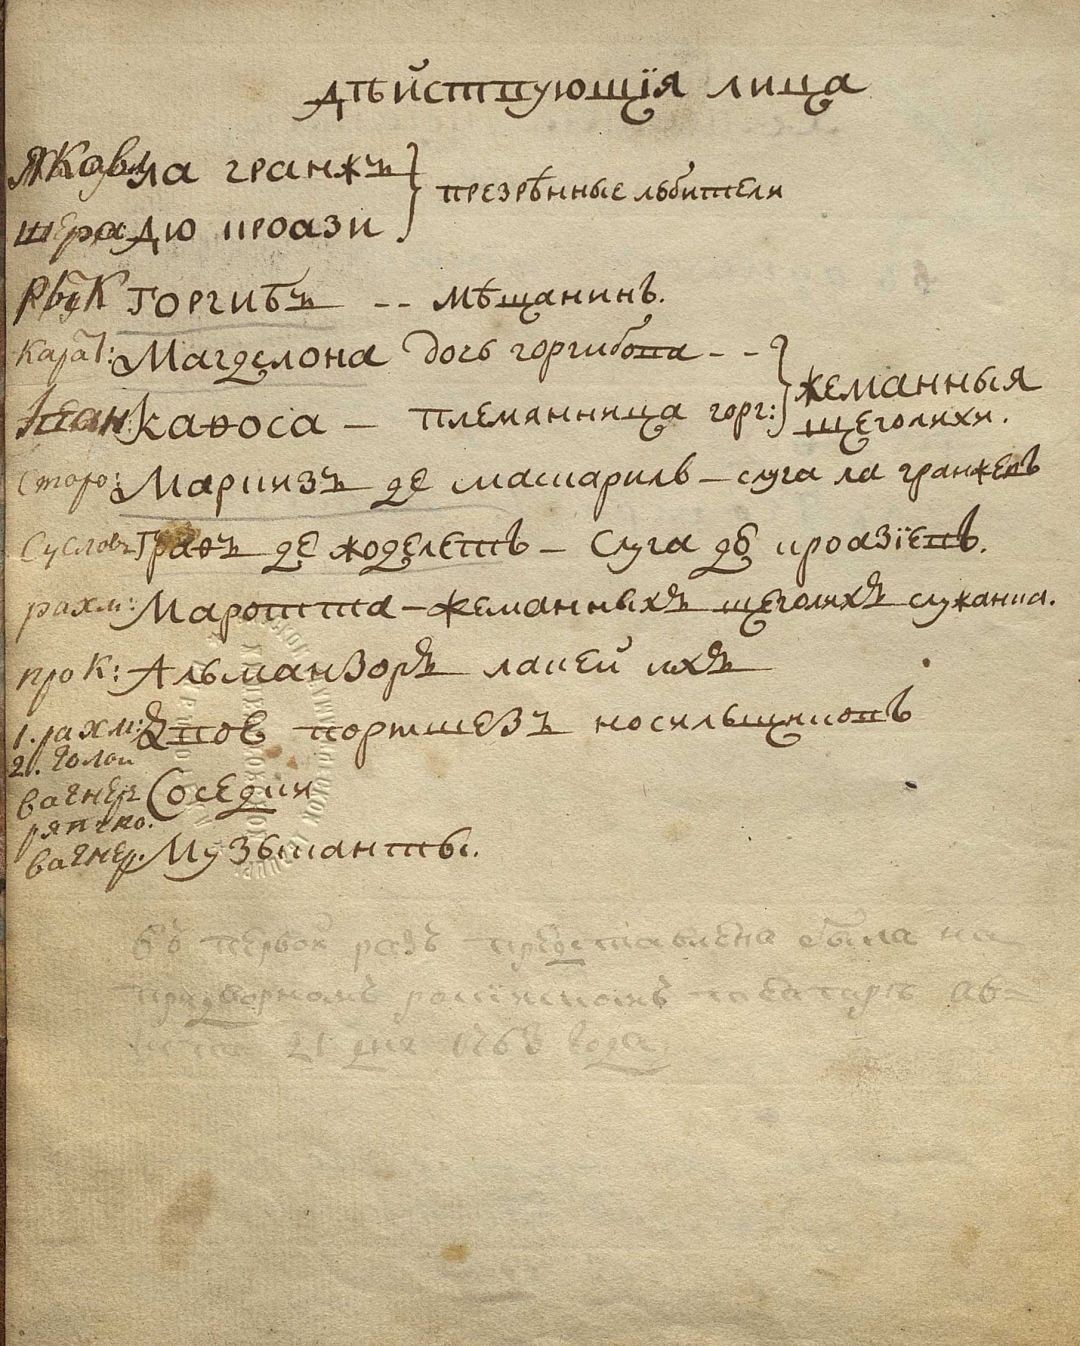 дѣйствующїя лица
Яковл ла гранжъ } презрѣнные любители
шера дю кроази
Рбук Горгибъ -- мѣщанинъ.
Кара: Магделона дочь горгибова -- } жеманныя
Иван: Каѳоса — племянница горг: щеголихи.
Сторо: Маркизъ де маскариль — слуга ла гранжевъ
Суслов: Граѳъ де жоделетъ — слуга дю кроазїевъ.
рахм: Маротта — жеманныхъ щеголихъ служанка.
прок: Альманзоръ лакей ихъ
1. рахм: Двое портшезъ носильщиковъ
2. голов
вагнер Соседки
ряпчко.
вагнер. Музыканты.
въ первой разъ представлена была на
придворномъ россїискомъ театрѣ ав=
густа 21 дня 1763 года.